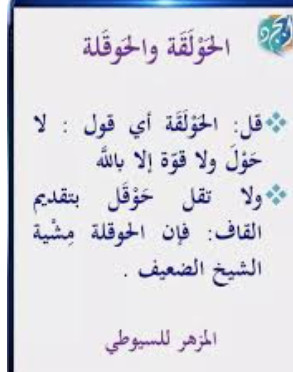 الحَوْلَقَة والحَوقَلة
قل: الحَوْلَقَة أي قول : لا
حَوْلَ ولا قوّة إلا بالله
ولا تقل حَوْقَل بتقديم
القاف: فإن الحوقلة مِشْية
الشيخ الضعيف .
المزهر للسيوطي